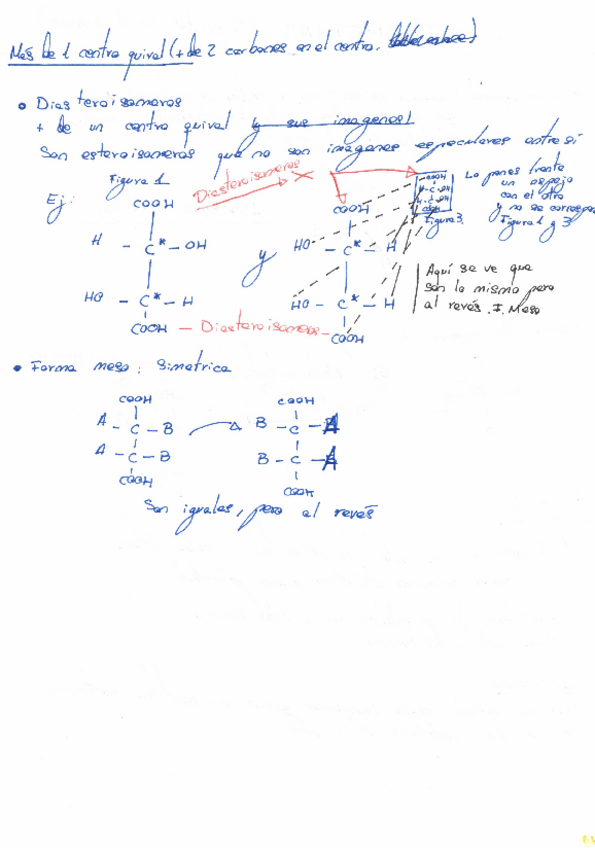 Más de 1 centro quiral (+ de 2 carbones en el centro,
• Diasteroisomeros
+ de un centro quiral y sus imagenes!
Son esteroisomeros que no son imágenes especulares entre si
Ej:
Figura 1
COOH
H - C* - OH
HO - C* - H
COOH
Diasteroisomeros
y
COOH
HO - C* - H
HO - C* - H
COOH
- Diasteroisomeros -
COOH
H-C-OH
H-C-OH
Figura 3
Lo pones frente
un espejo
con el otro
y no se correspon
Figura 1 y 3
Aquí se ve que
son lo mismo pero
al revés. F. Meso
• Forma meso: Simetrica
COOH
A - C - B
A - C - B
COOH
COOH
B - C - A
B - C - A
COOH
Son iguales, pero al revés